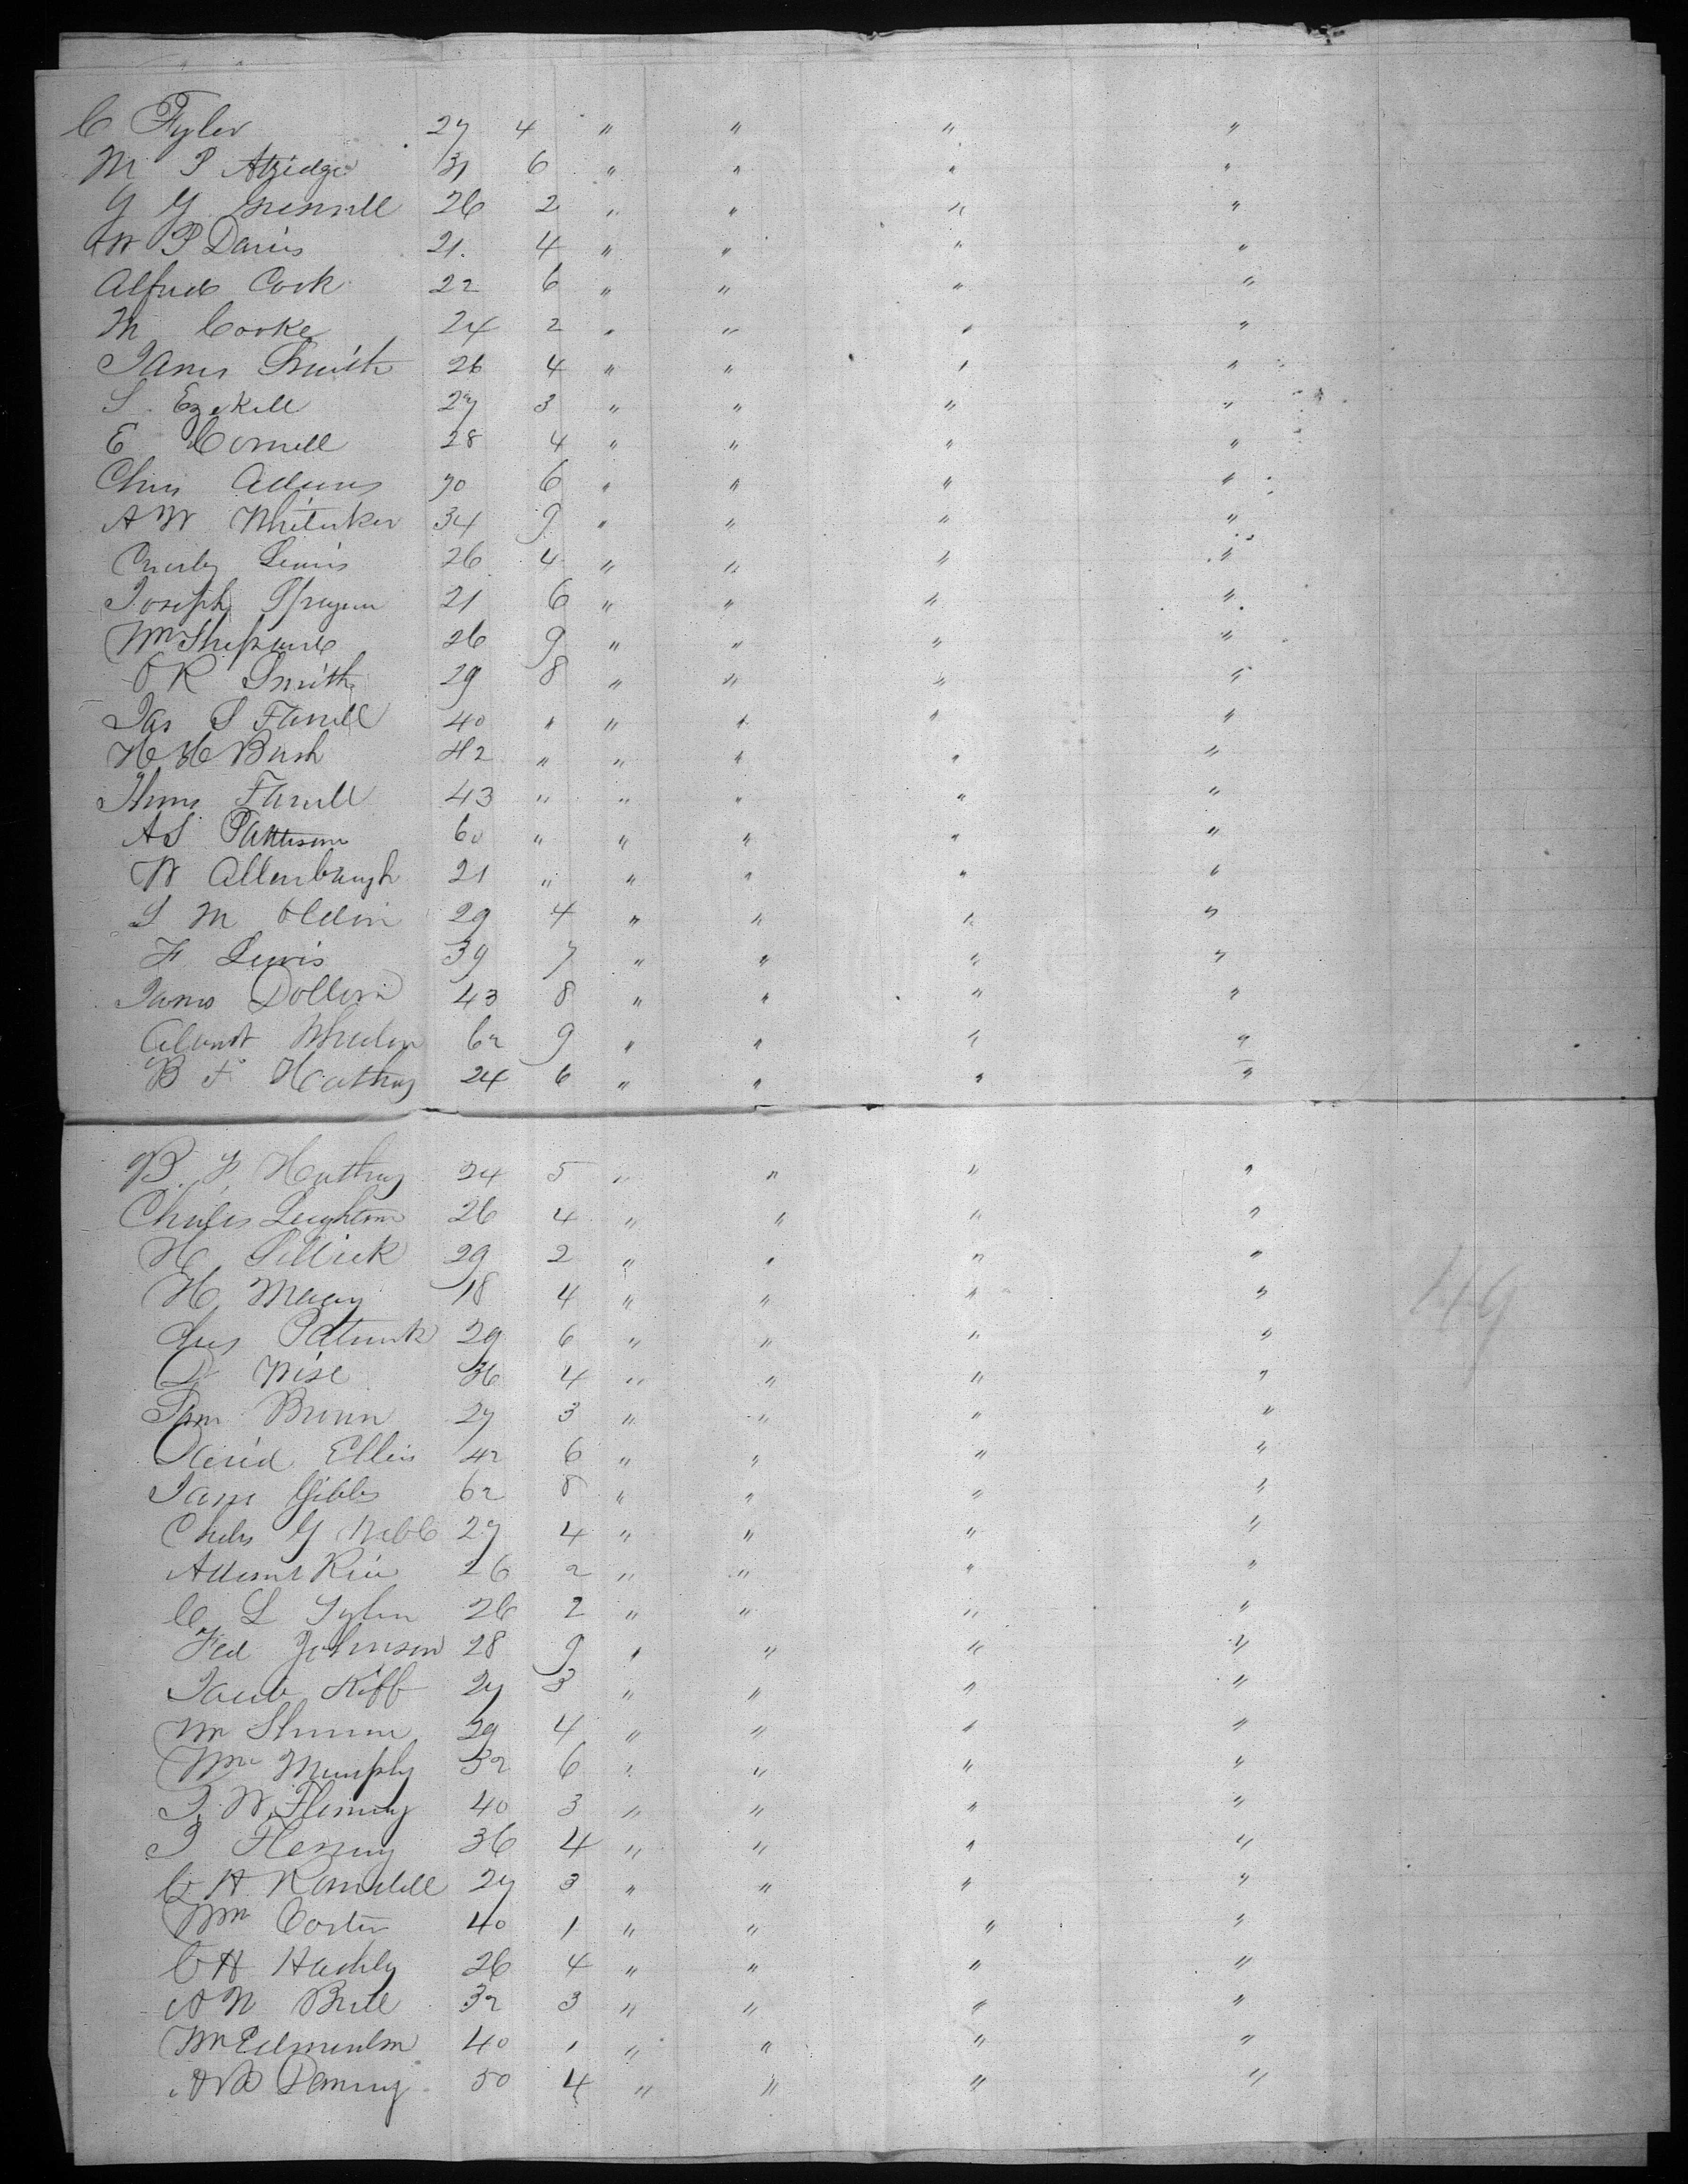 C Tyler 27 4 " " " "
M P 31 6 " " " "
G G Grennell 26 2 " " " "
W P Davis 21. 4 " " " "
Alfred Cook 22 6 " " " "
M Cooke 24 2 " " " "
James Smith 26 4 " " " "
S. Ezekell 27 3 " " " "
E Cornell 28 4 " " " "
Chas Adams 30 6 " " " "
A W Whitaker 34 9 " " " "
Lewis 26 4 " " " "
Joseph Sprague 21 6 " " " "
Wm Shepard 26 9 " " " "
O R Smith 29 8 " " " "
Jas S Farrell 40 " " " " "
H H Bush 42 " " " " "
Thoms Farrell 43 " " " " "
A S Patterson 60 " " " " "
W Allenbaugh 21 " " " " "
S M 29 4 " " " "
F Lewis 39 7 " " " "
James 43 8 " " " "
62 9 " " " "
B F Hathay 24 6 " " " "
B. F. Hathay 24 5 " " " "
Charles Leighton 26 4 " " " "
H Sellick 29 2 " " " "
H Macy 18 4 " " " "
29 6 " " " "
D Wise 36 4 " " " "
Sam Brown 27 3 " " " "
David Ellis 42 6 " " " "
James Gibbs 62 8 " " " "
Chales G Webb 27 4 " " " "
Rice 26 2 " " " "
C L Tyler 26 2 " " " "
Fed Johnson 28 9 " " " "
Jacob 27 3 " " " "
Wm 29 4 " " " "
Wm Murphy 32 6 " " " "
J. W. Fleming 40 3 " " " "
J Fleming 36 4 " " " "
C H Ramsdell 27 3 " " " "
Wm Carter 40 1 " " " "
C H 26 4 " " " "
A N Bull 32 3 " " " "
Wm Edmundson 40 1 " " " "
50 4 " " " "
49